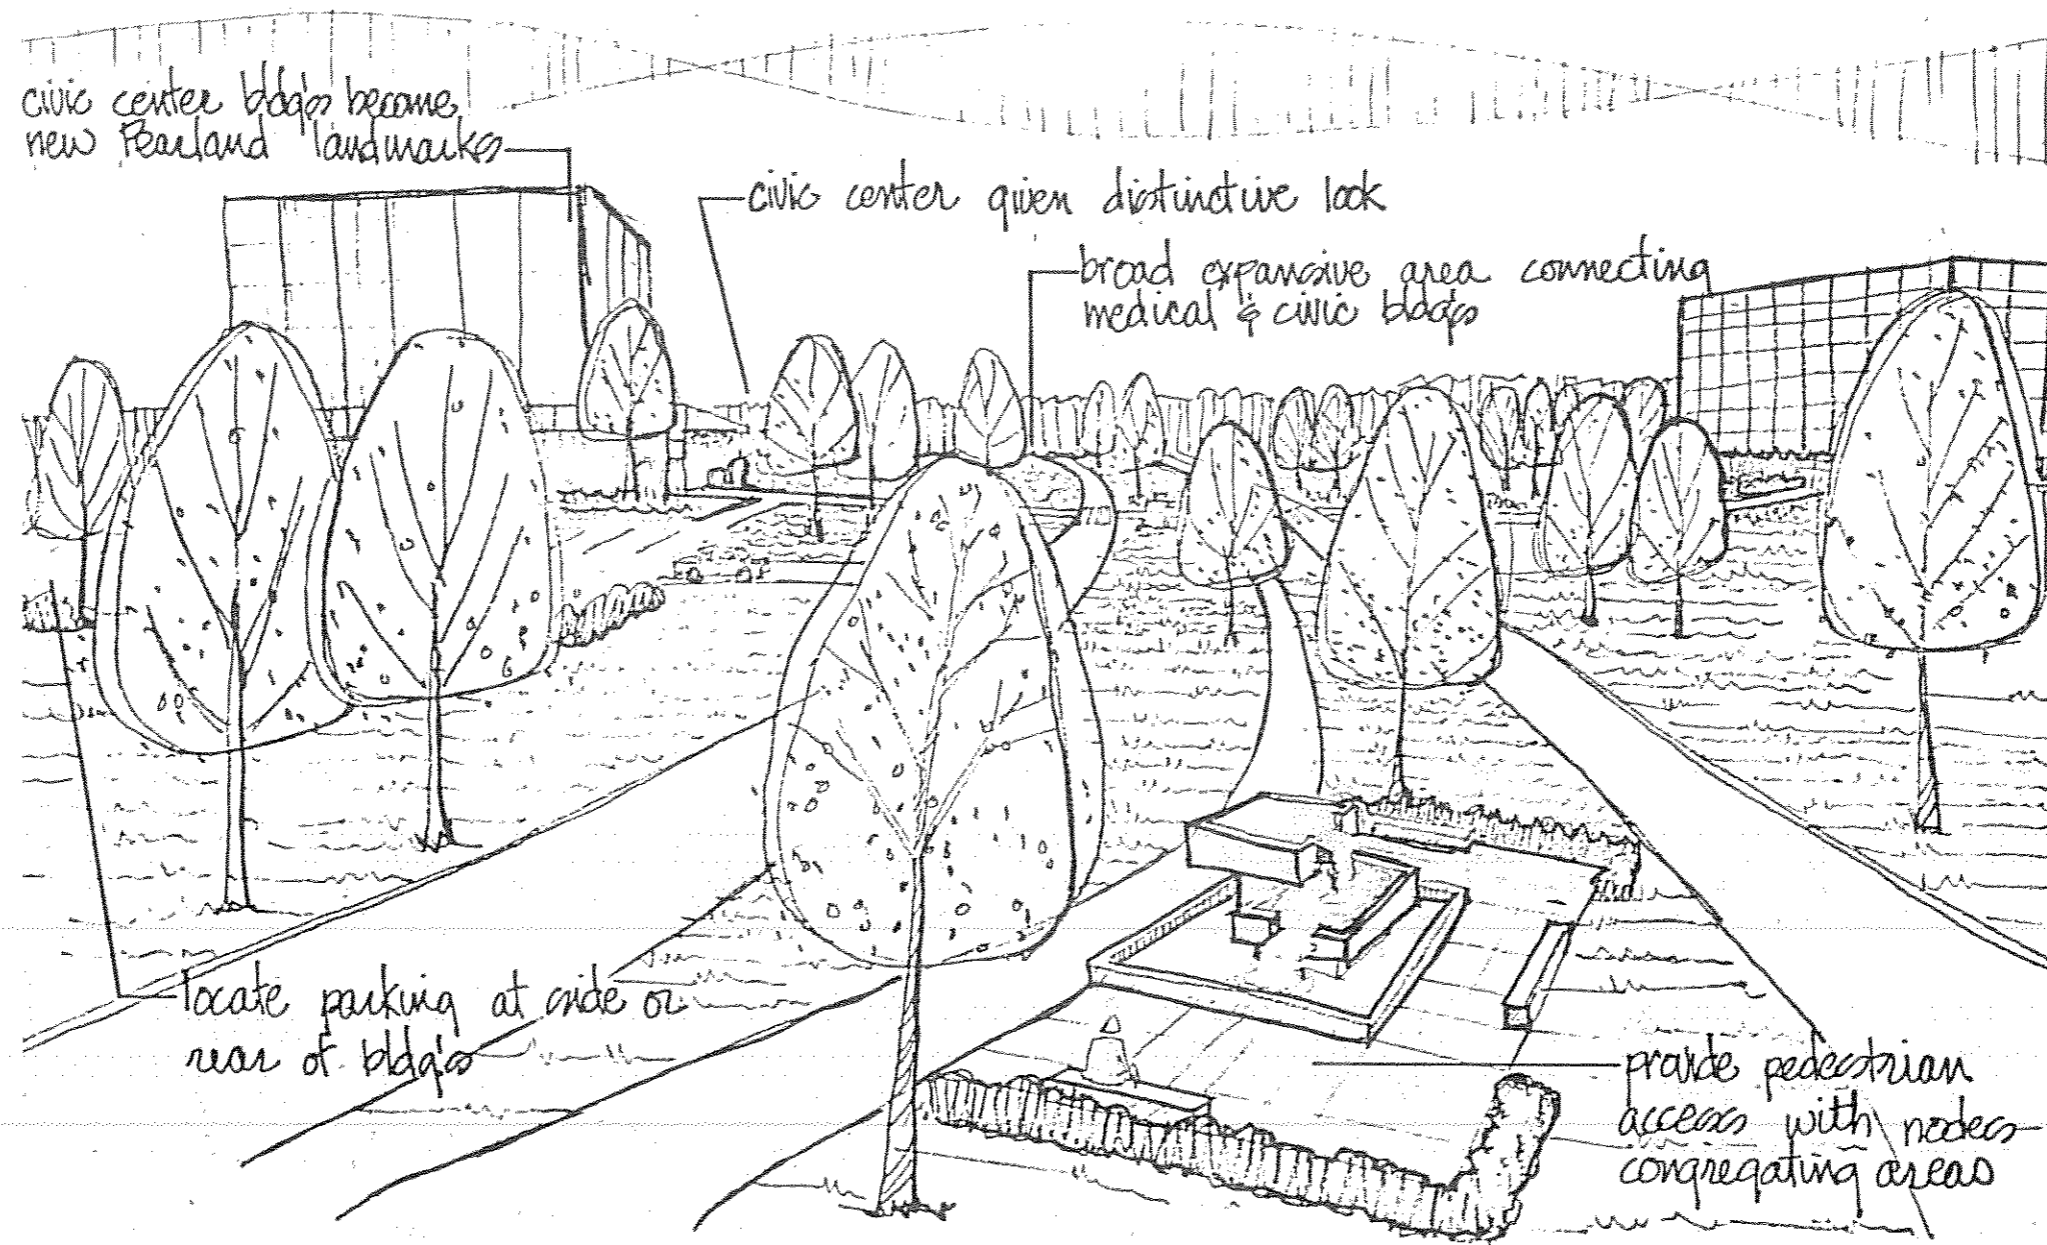 civic center bldg's become
new Pearland landmarks
civic center given distinctive look
broad expansive area connecting
medical & civic bldg's
locate parking at side or
rear of bldg's
provide pedestrian
access with nodes-
congregating areas